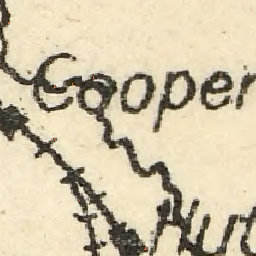 Cooper
Hut